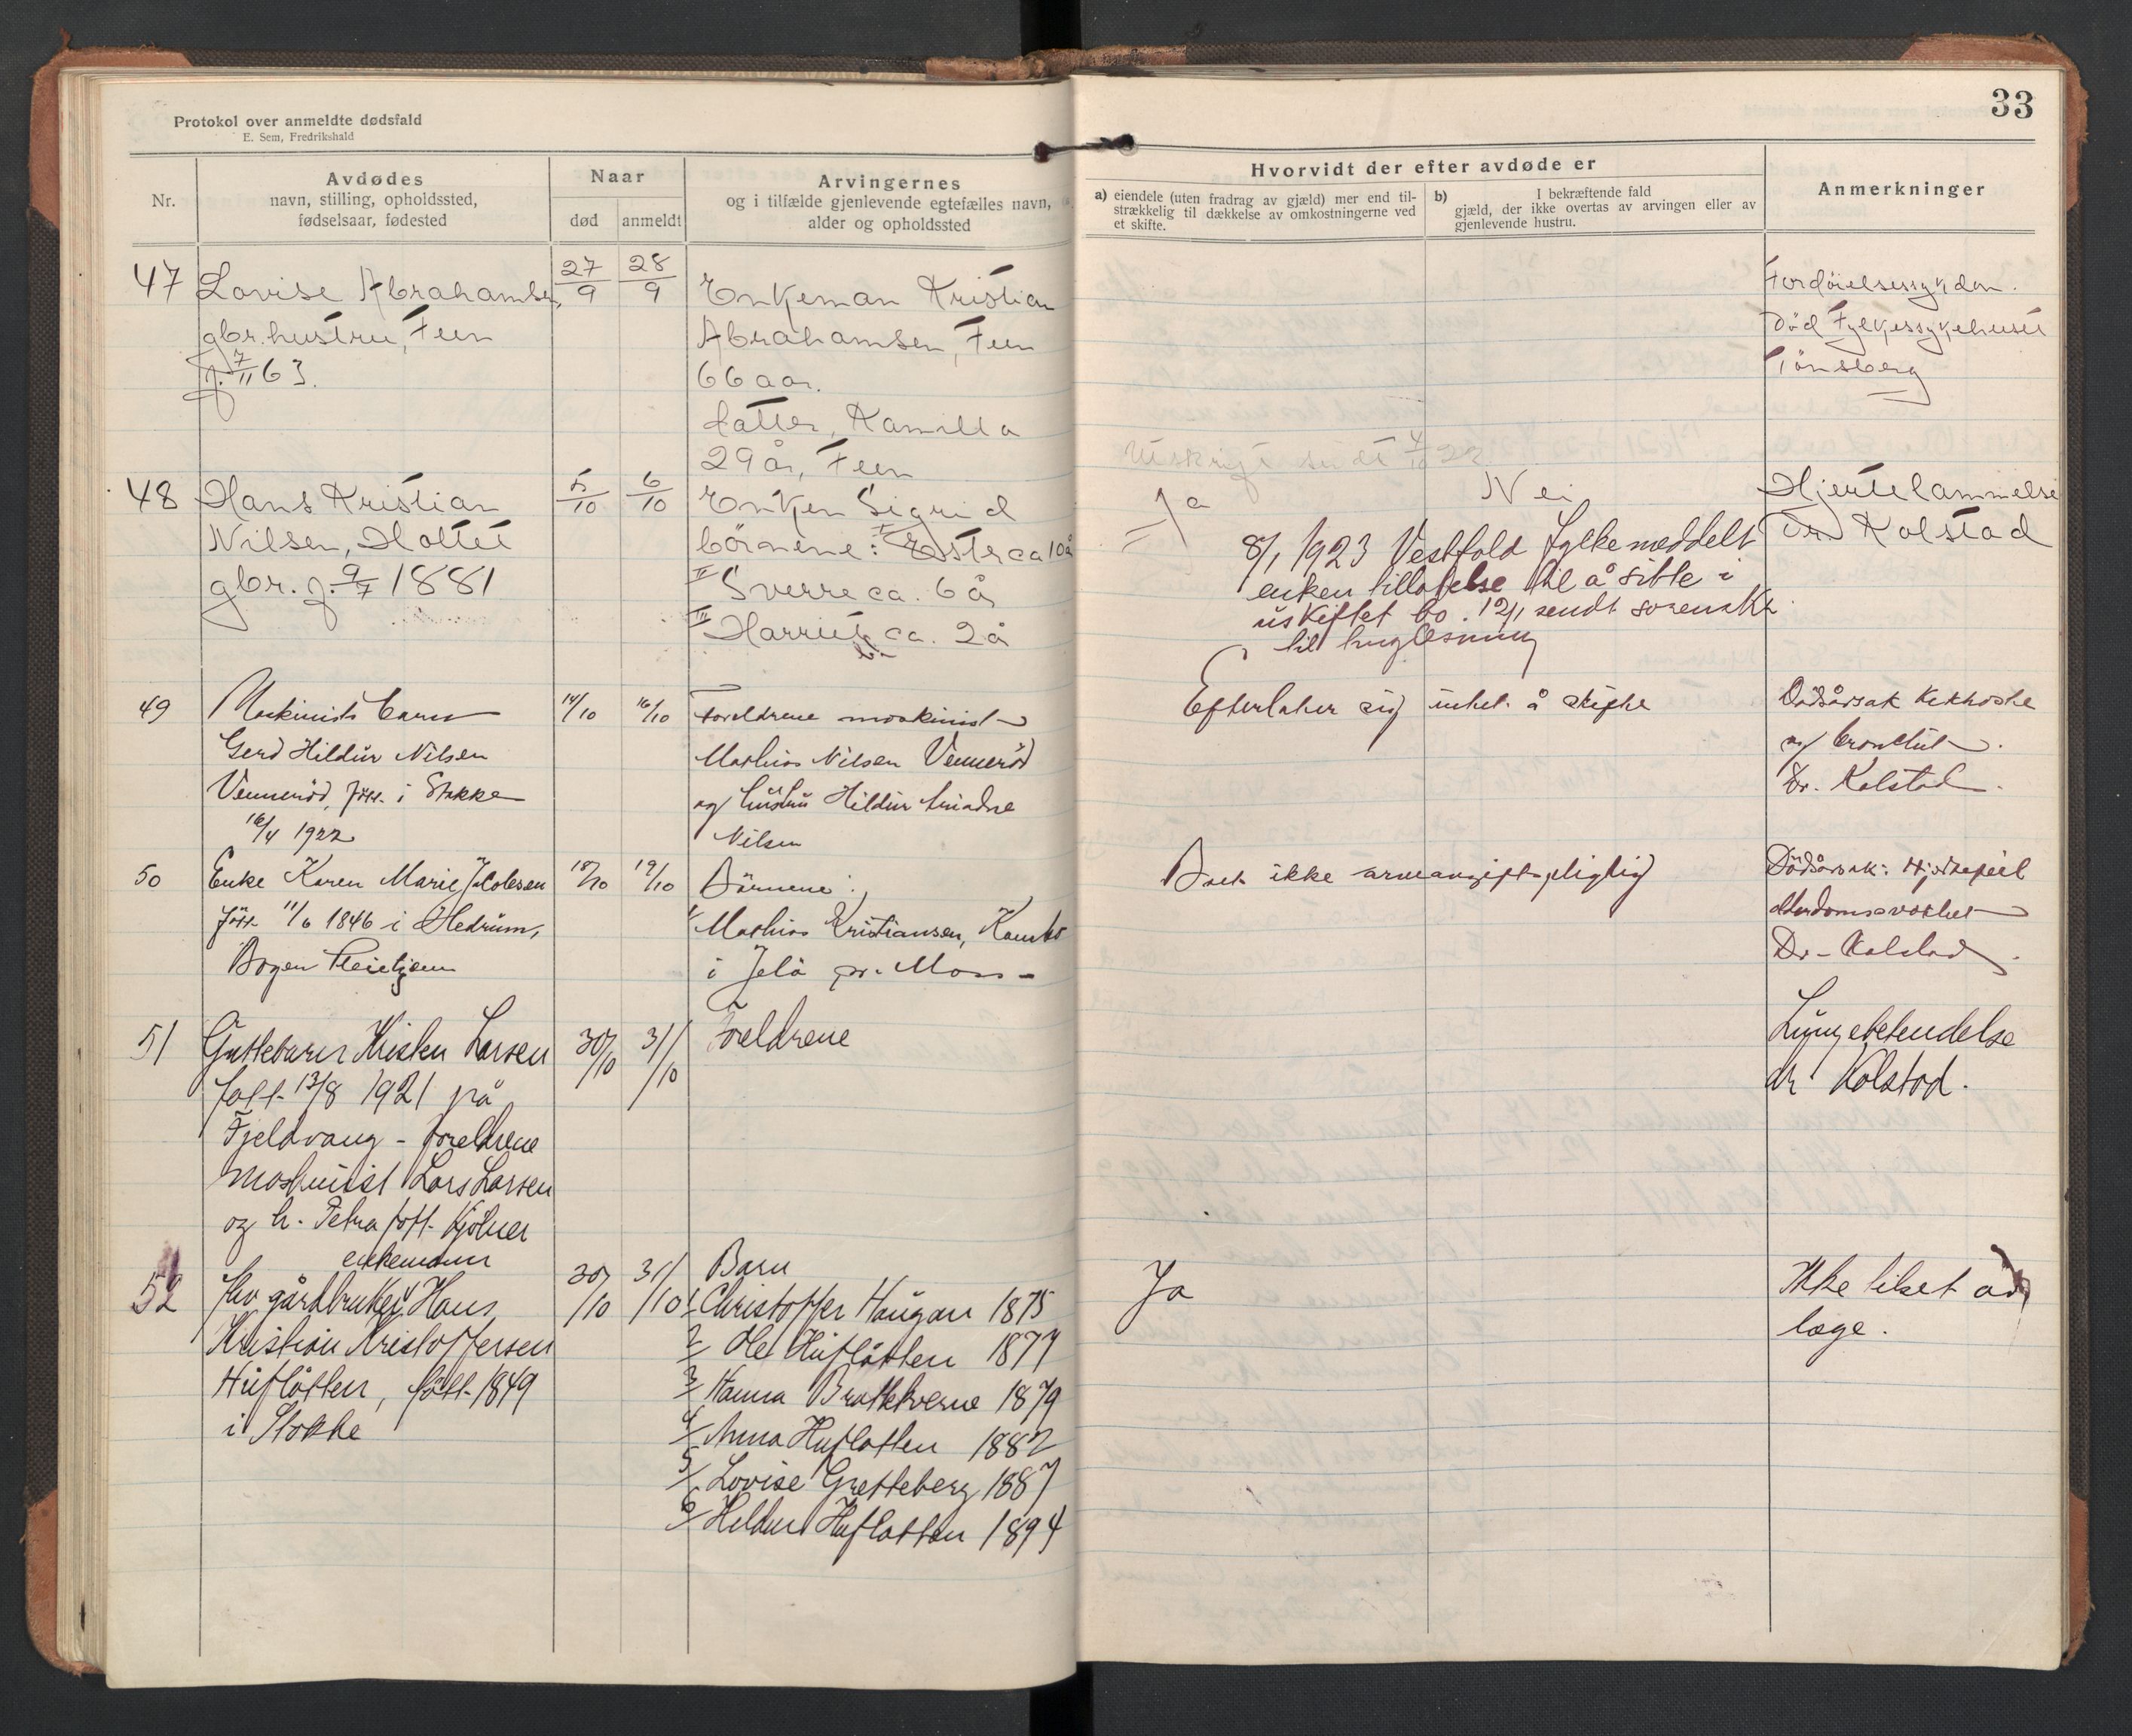 33
Protokol over anmeldte dødsfald
E. Sem, Fredrikshald
Nr.
Avdødes
navn, stilling, opholdssted,
fødselsaar, fødested
Naar
død
anmeldt
Arvingernes
og i tilfælde gjenlevende egtefælles navn,
alder og opholdssted
Hvorvidt der efter avdøde er
a) eiendele (uten fradrag av gjæld) mer end til-
strækkelig til dækkelse av omkostningerne ved
et skifte.
b) I bekræftende fald
gjæld, der ikke overtas av arvingen eller av
gjenlevende hustru.
Anmerkninger
47
Lovise Abrahamsen,
gbr.hustru, Feen
f. 7/11 63.
27/9
28/9
Enkeman Kristian
Abrahamsen, Feen
66 aar.
datter, Kamilla
29 år, Feen
Fordøielsessykdom.
Død Fylkessykehuset
Tønsberg
Utskrift sendt 4/10 22
48
Hans Kristian
Nilsen, Holtet
gbr. f. 9/7 1881
5/10
6/10
Enken Sigrid
børnene: I Ester ca 10 å
II Sverre ca. 6 å
III Harriet ca. 2 å
Ja
Nei
8/1 1923 Vestfold fylke meddelt
enken tillatelse til å sitte i
uskiftet bo. 12/1 sendt sorenskr.
til tinglesning
Hjertelammelse
Dr Kolstad
49
Maskinist barn
Gerd Hildur Nilsen
Vennerød, født i Stokke
16/4 1922
14/10
16/10
Foreldrene maskinist
Mathias Nilsen Vennerød
og hustru Hildur
Nilsen
Efterlater sig intet å skifte
Dødsårsak Kikhoste
og bronchit.
Dr. Kolstad.
50
Enke Karen Marie Jacobsen
født 11/6 1846 i Hedrum,
Bogen Pleiehjem
18/10
19/10
Børnene:
1/ Mathias Kristiansen, Kambo
i Jeløy pr. Moss
Boet ikke arveavgiftspligtig
Dødsårsak: Hjertefeil
alderdomssvakhet
Dr. Kolstad.
51
Guttebarn Kristen Larsen
født 13/8 1921 på
Fjeldvang - foreldrene
maskinist Lars Larsen
og h. Petra født Kjølner
30/10
31/10
Foreldrene
Lungebetendelse
dr Kolstad.
52
enkemann
fhv gårdbruker Hans
Kristian Kristoffersen
Hufløtten, født 1849
i Stokke
30/10
31/10
Barn
1/ Christoffer Haugan 1875
2/ Ole Hufløtten 1877
3/ Hanna Brattekverne 1879
4/ Anna Hufløtten 1882
5/ Lovise Gretteberg 1887
6/ Hildur Hufløtten 1894
Ja
Ikke tilset av
læge.